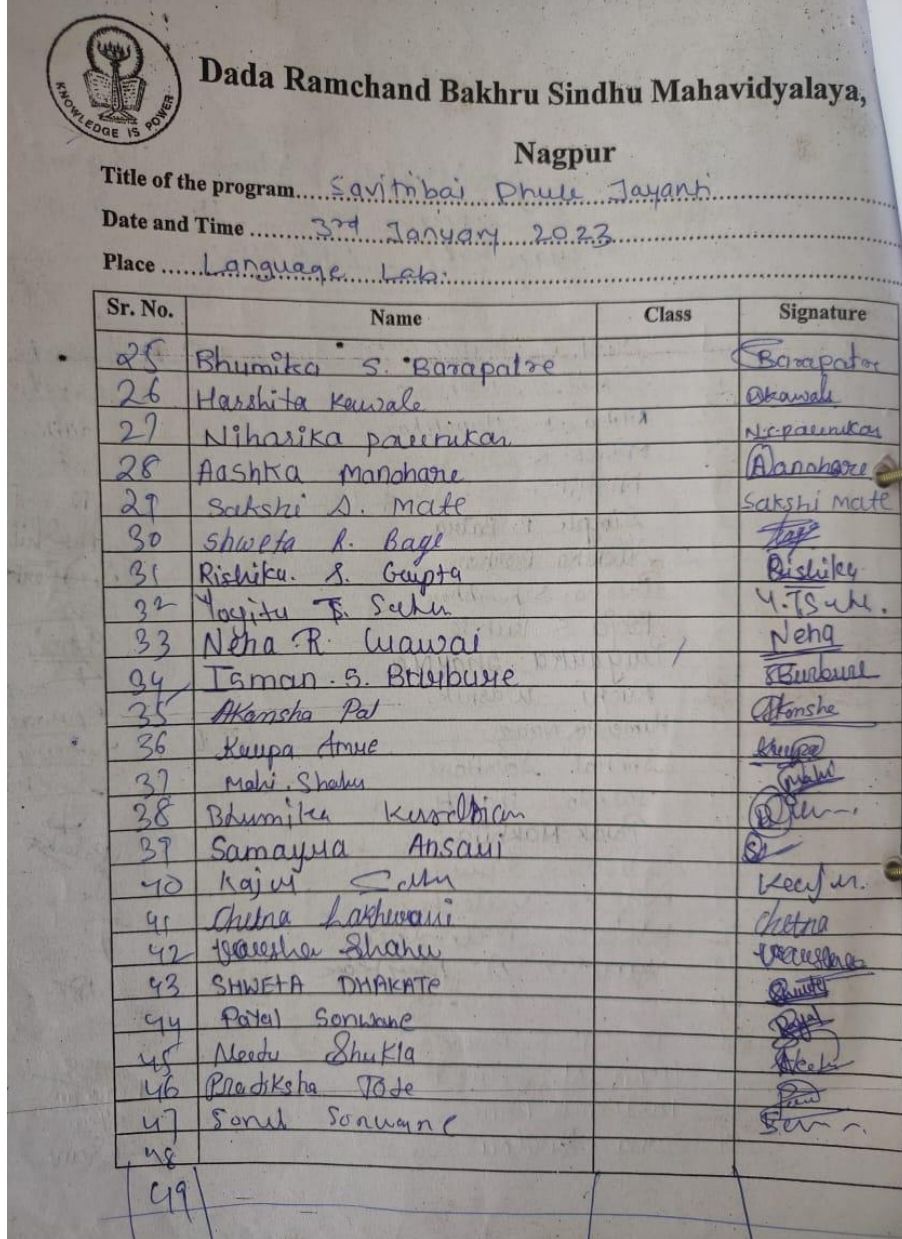 KNOWLEDGE IS POWER
Dada Ramchand Bakhru Sindhu Mahavidyalaya,
Nagpur
Title of the program.... Savitribai Phule Jayanti
Date and Time .......... 3rd January 2023
Place ..... Language Lab.
Sr. No. Name Class Signature
25 Bhumika S. Barapatre Barapatre
26 Harshita Kawale Kawale
27 Niharika paunikar N.c.paunikar
28 Aashka Manohare Manohare
29 Sakshi D. Mate Sakshi Mate
30 Shweta R. Bage
31 Rishika. S. Gupta Rishika
32 Yogita T. Sahu Y.TSahu.
33 Neha R. Wawai Neha
34 Isman. S. Burbure SBurbure
35 Akansha Pal Akansha
36 Krupa Amre Krupa
37 Mahi. Shahu Mahi
38 Bhumika
39 Samayra Ansari
40
41 Chetna Lakhwani Chetna
42 Varsha Shahu Varsha
43 SHWETA DHAKATE Shweta
44 Payal Sonwane Payal
45 Shukla
46 Pradiksha Tode
47 Sonul Sonwane
48
49